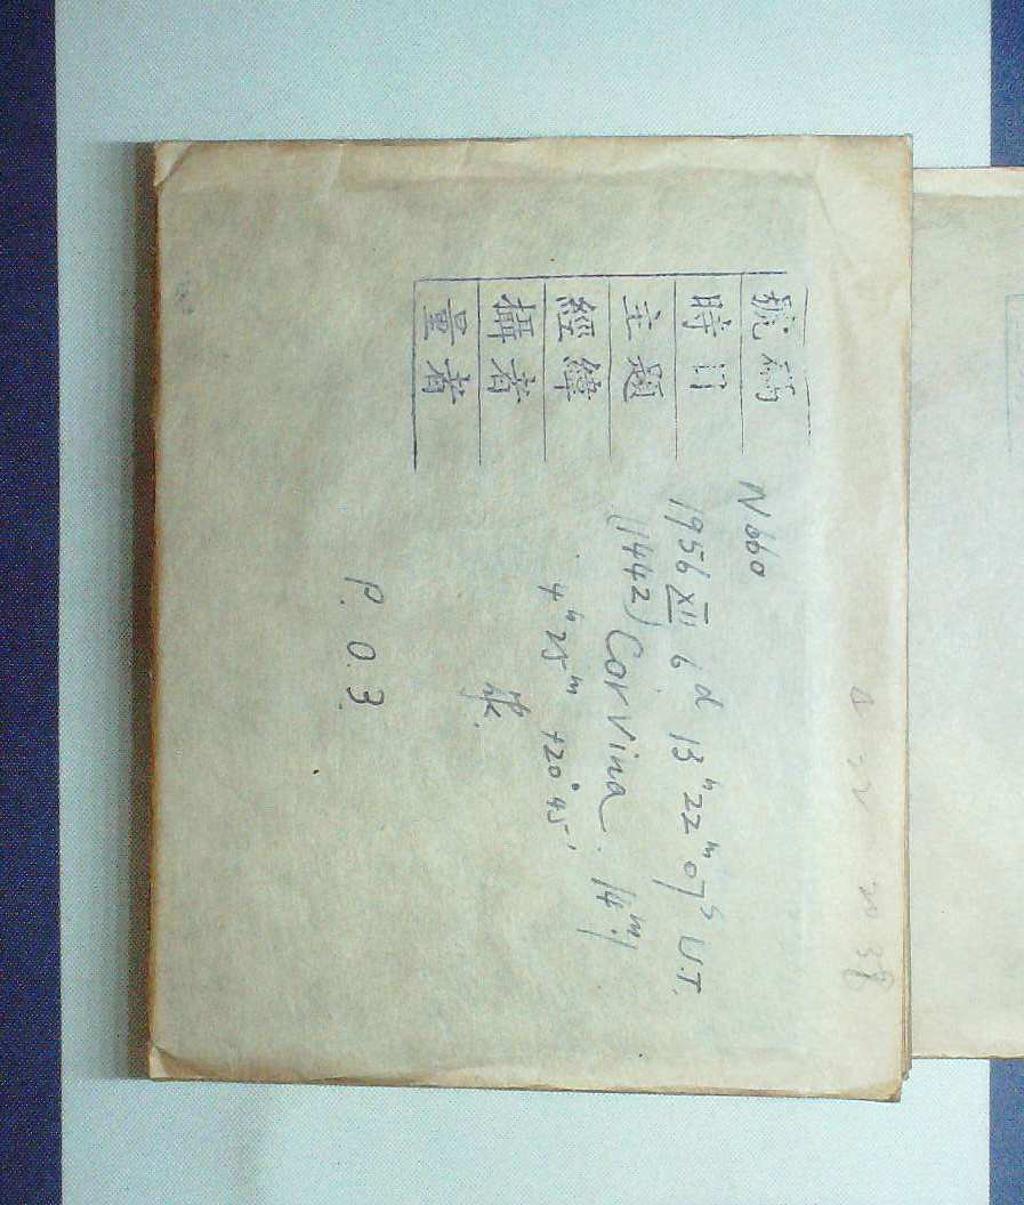 號碼 N660
時日 1956 XII 6d 13h 22m 07s U.T.
主題 (1442) Corvina. 14m.1
經緯 4h 25m +20° 45'
攝者
量者
P. O. 3.